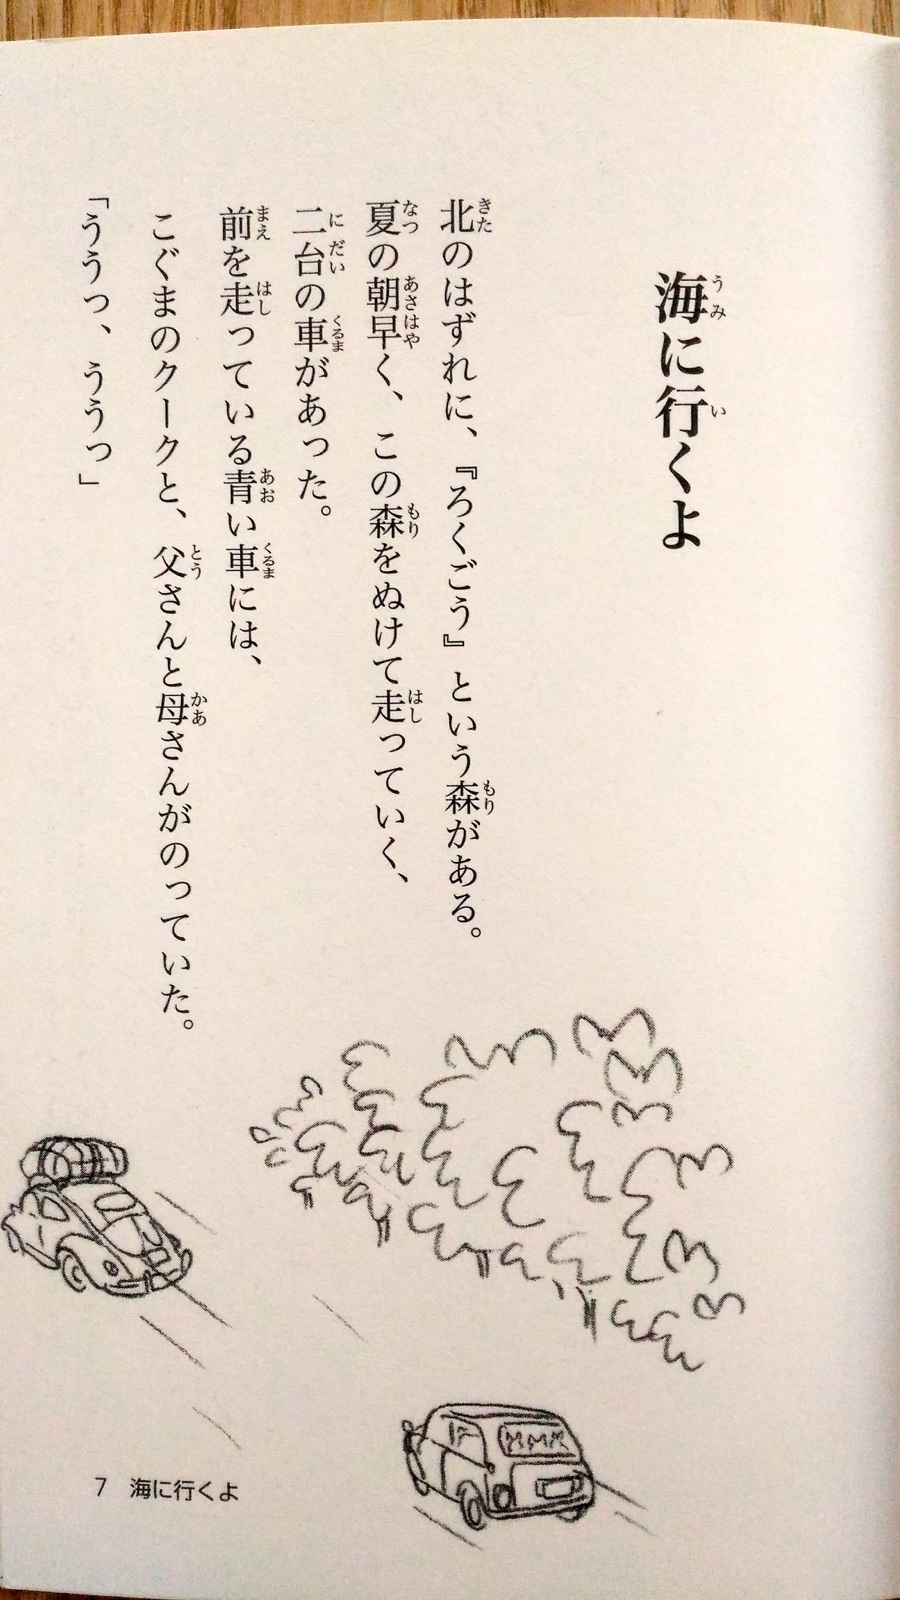 海に行くよ
北のはずれに、『ろくごう』という森がある。
夏の朝早く、この森をぬけて走っていく、
二台の車があった。
前を走っている青い車には、
こぐまのクークと、父さんと母さんがのっていた。
「ううっ、ううっ」
7 海に行くよ